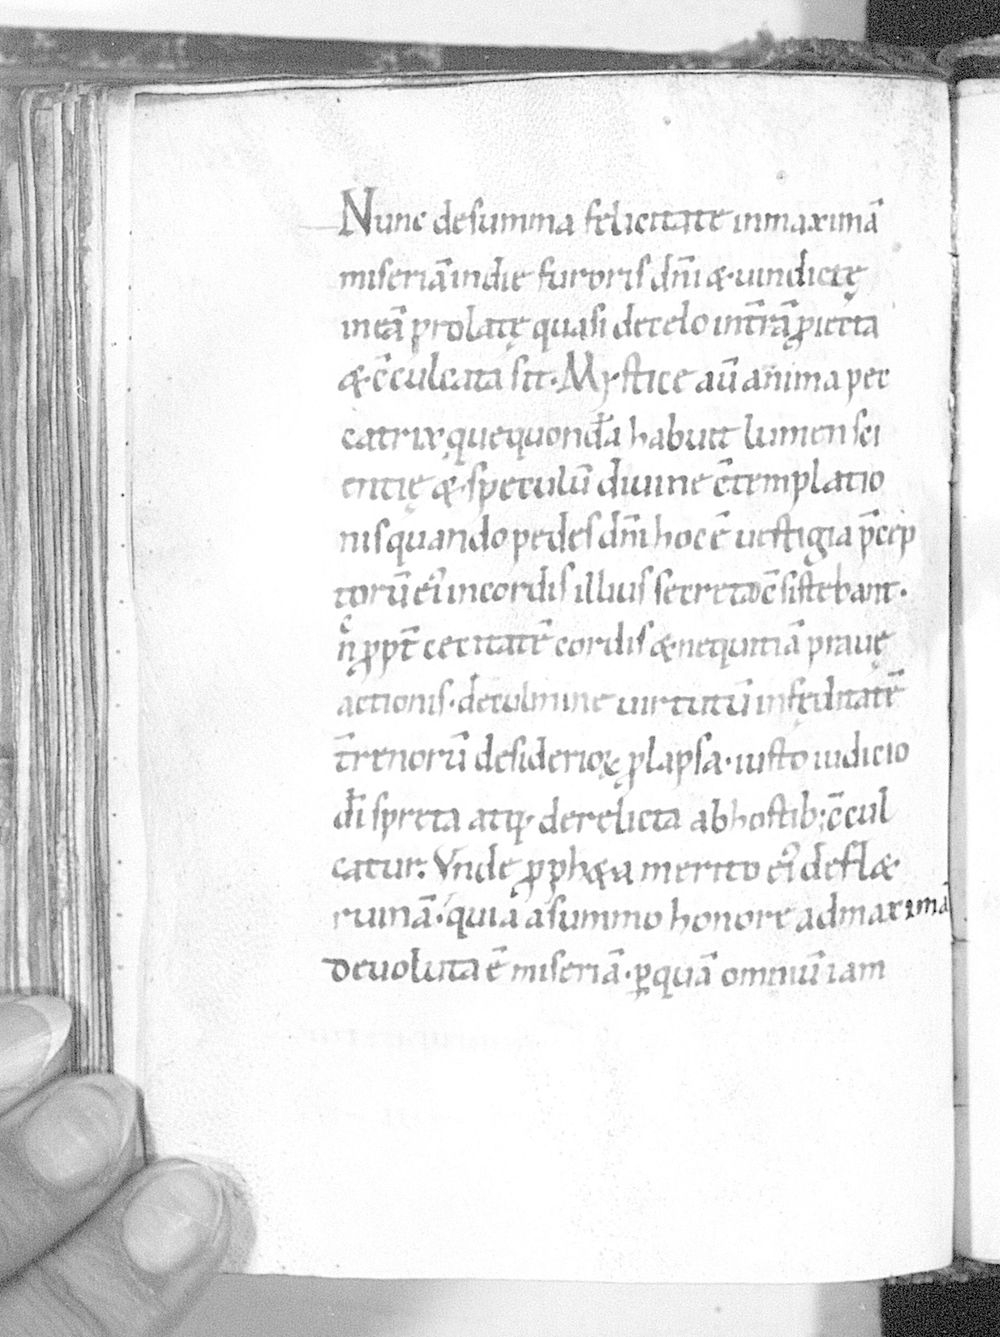 Nunc de summa felicitate in maximā
miseriā in die furoris dn̄i & uindictę
in eā prolatę quasi de celo in t̄rā ꝓiecta
& c̄culcata sit. Mystice aū anima pec
catrix que quondā habuit lumen sci
entię & speculū diuine c̄templatio
nis quando pedes dn̄i hoc ē uestigia p̄cep
torū ei᷒ in cordis illius secreto c̄sistebant.
ꝓpt̄ cecitatē cordis & nequitiā prauę
actionis. de culmine uirtutū in fęditatē
t̄renorū desiderioꝝ ꝓlapsa. iusto iudicio
dī spreta atq; derelicta ab hostib; c̄cul
catur. Vnde ꝓph&a merito ei᷒ defl&
ruinā. quia a summo honore ad maximā
deuoluta ē miseriā. ꝑ quā omniū iam